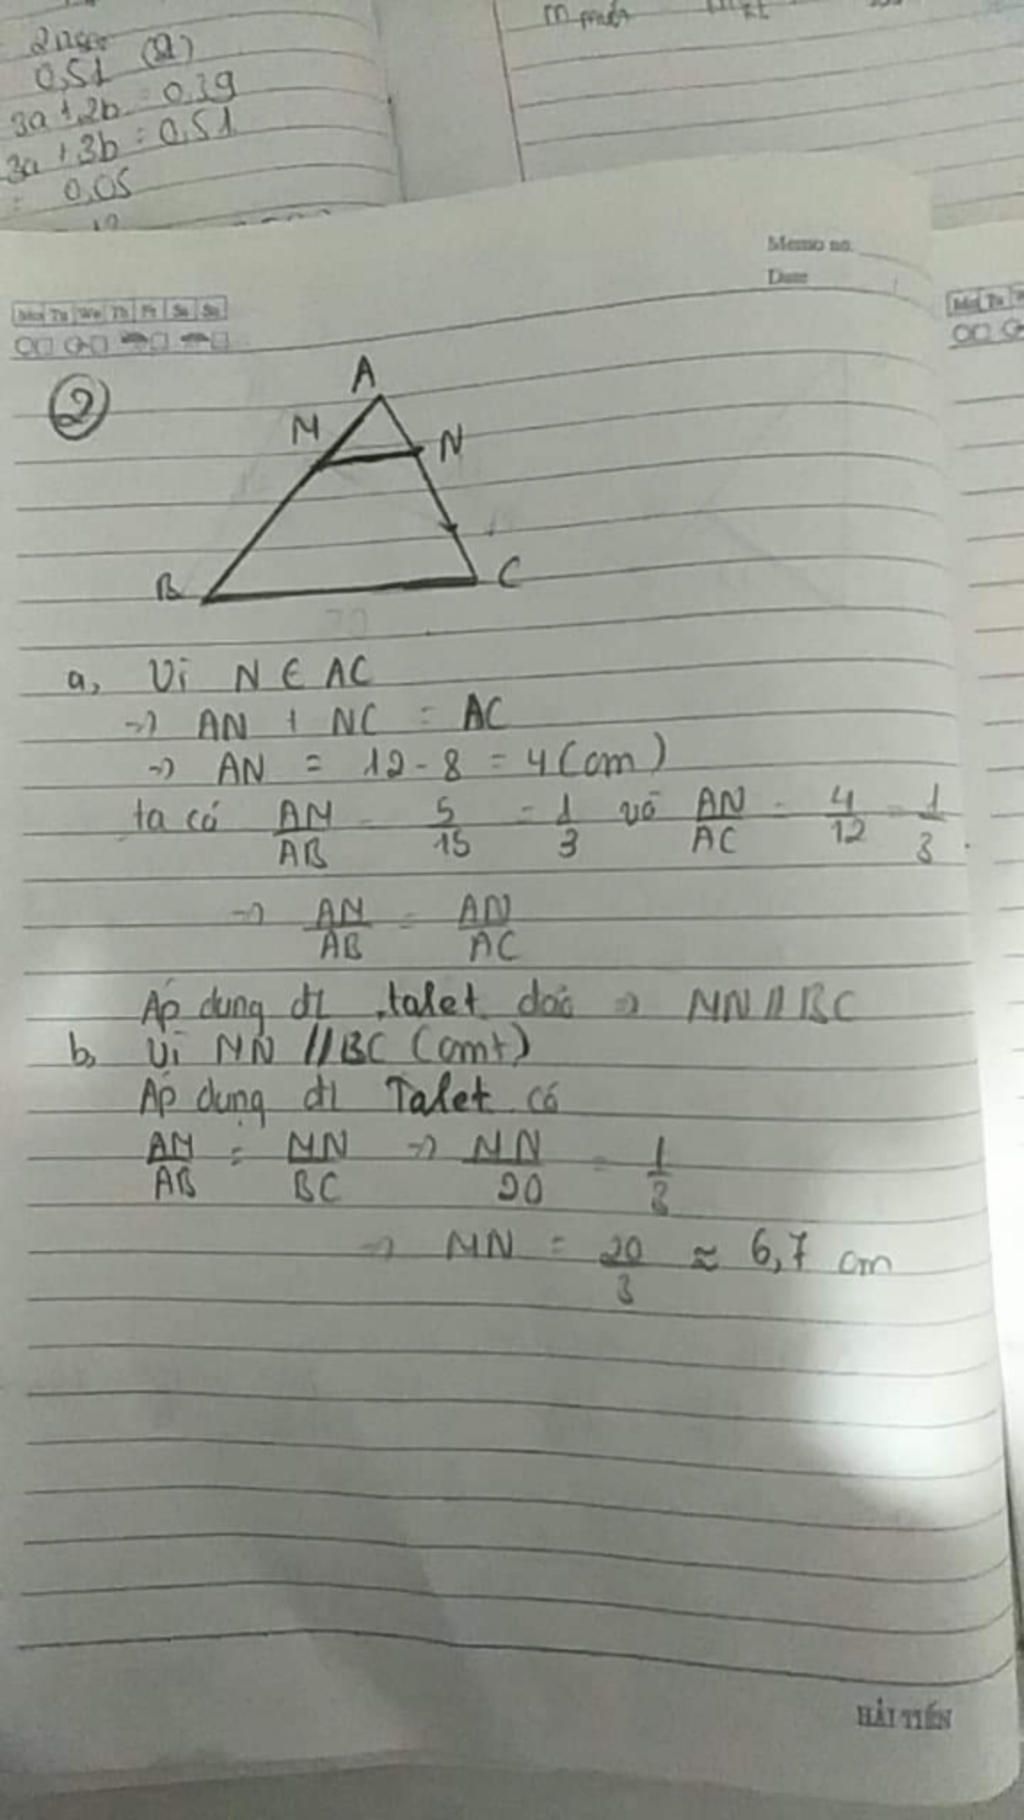 0,51 (2)
3a + 2b = 0,39
3a + 3b = 0,51
= 0,05
Memo no.
Date
Mo Tu We Th Fr Sa Su
Mo Tu
②
A
M
N
B
C
a, Vì N ∈ AC
→ AN + NC = AC
→ AN = 12 - 8 = 4 (cm)
ta có AM/AB = 5/15 = 1/3 và AN/AC = 4/12 = 1/3.
→ AM/AB = AN/AC
Áp dụng đl talet đảo → MN // BC
b, Vì MN // BC (cmt)
Áp dụng đl Talet có
AM/AB = MN/BC → MN/20 = 1/3
→ MN = 20/3 ≈ 6,7 cm
HẢI TIẾN